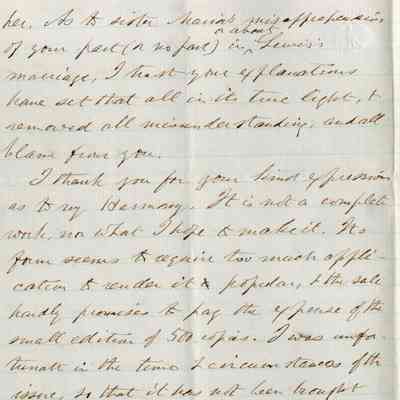 her. As to sister Maria's misapprehension
of your part (or no part) in or about Lewis's
marriage, I trust your explanations
have set that all in its true light, &
removed all misunderstanding, and all
blame from you.
I thank you for your kind expressions
as to my Harmony. It is not a complete
work, no what I hope to make it. Its
form seems to require too much appli-
cation to render it popular, & the sale
hardly promises to pay the expense of the
small edition of 500 copies. I was unfor-
tunate in the time & circumstances of the
issue, so that it has not been brought